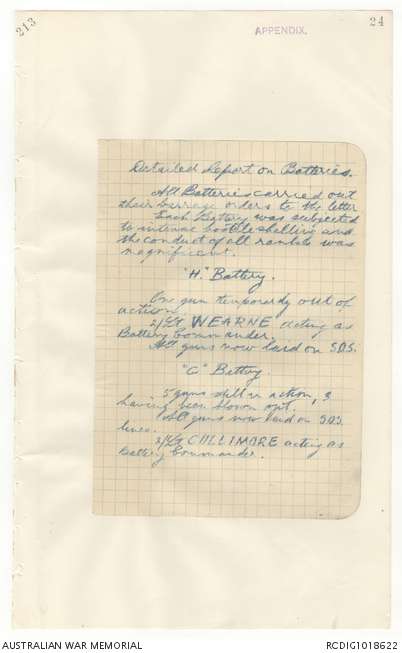 213
APPENDIX.
24
Detailed Report on Batteries.
All Batteries carried out
their barrage orders to the letter
Each Battery was subjected
to intense hostile shelling and
the conduct of all ranks was
magnificent.
"H." Battery.
One gun temporarily out of
action.
2/Lt WEARNE acting as
Battery Commander.
All guns now laid on S.O.S.
"C" Battery.
5 guns still in action, 3
having been blown out.
All guns now laid on S.O.S.
lines.
2/Lt CULLIMORE acting as
Battery Commander.
AUSTRALIAN WAR MEMORIAL
RCDIG1018622